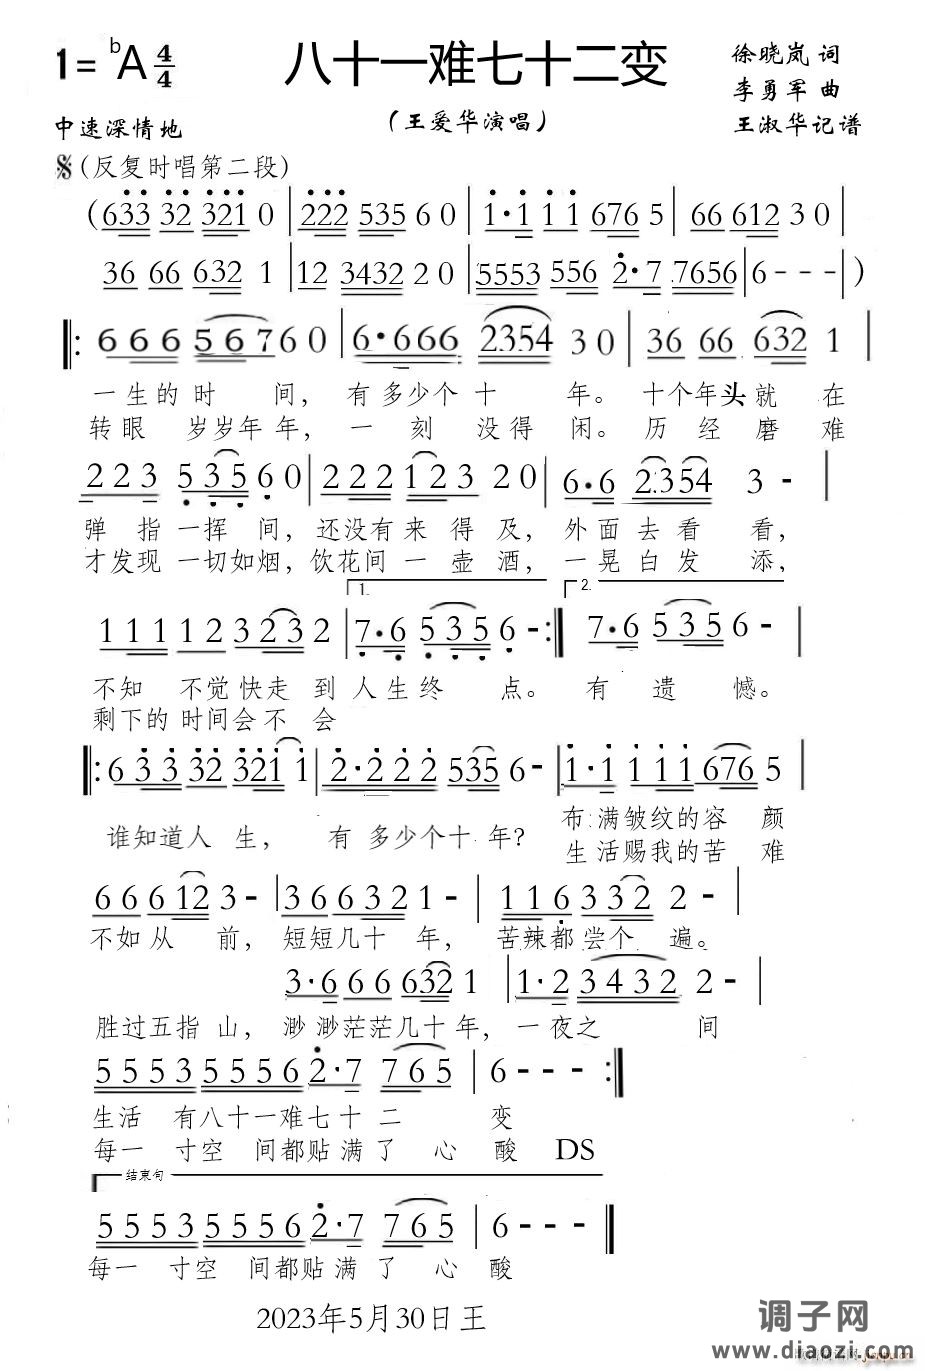 1= ᵇA 4/4 八十一难七十二变 徐晓岚 词
李勇军 曲
中速深情地 (王爱华演唱) 王淑华记谱
(反复时唱第二段)
(633 32 321 0 | 222 535 6 0 | 1·1 1 1 676 5 | 66 612 3 0 |
36 66 632 1 | 12 3432 2 0 | 5553 556 2·7 7656 | 6 - - - | )
|: 6 6 6 5 6 7 6 0 | 6·666 2354 3 0 | 36 66 632 1 |
一生的时 间, 有多少个十 年。 十个年头就 在
转眼 岁岁年年, 一 刻 没得 闲。 历 经 磨 难
2 2 3 5 3 5 6 0 | 2 2 2 1 2 3 2 0 | 6·6 2354 3 - |
弹 指 一挥 间, 还没有来 得 及, 外 面 去 看 看,
才发现 一切如烟, 饮花间 一 壶 酒, 一 晃 白 发 添,
1. 2.
1 1 1 1 2 3 2 3 2 | 7·6 5 3 5 6 - :| 7·6 5 3 5 6 - |
不知 不觉快走 到 人生终 点。 有 遗 憾。
剩下的 时间会不 会
|: 6 3 3 32 321 1 | 2·2 2 2 535 6 - | 1·1 1 1 1 676 5 |
布满皱纹的容 颜
谁知道人 生, 有 多少个十 年? 生活赐我的苦 难
6 6 6 12 3 - | 3 6 6 3 2 1 - | 1 1 6 3 3 2 2 - |
不如从 前, 短短几十 年, 苦辣都 尝个 遍。
3·6 66 632 1 | 1·2 3 4 3 2 2 - |
胜过五指 山, 渺渺茫茫几十年, 一夜之 间
5 5 5 3 5 5 5 6 2·7 7 6 5 | 6 - - - :|
生活 有八十一难七十 二 变
每一 寸空 间都贴满了 心 酸 DS
结束句
5 5 5 3 5 5 5 6 2·7 7 6 5 | 6 - - - |
每一 寸空 间都贴满 了 心 酸
2023年5月30日王
调子网
www.diaozi.com